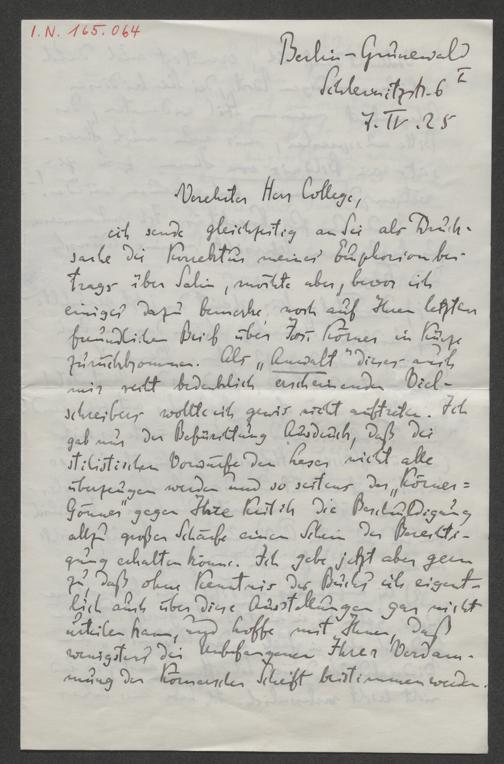 I.N. 165.064
Berlin-Grunewald
6 I
7. IV. 25
Verehrter Herr College,
ich sende gleichzeitig an Sie als Druck-
sache die Korrektur meines Euphorionbei-
trags über Salin, möchte aber, bevor ich
einiges dazu bemerke, noch auf Ihren letzten
freundlichen Brief über Jos. Körner in Kürze
zurückkommen. Als „Anwalt" dieses auch
mir recht bedenklich erscheinenden Viel-
schreibers wollte ich gewis nicht auftreten. Ich
gab nur der Befürchtung Ausdruck, daß die
stilistischen Vorwürfe den Leser nicht alle
überzeugen werden und so seitens der „Körner-
Gönner" gegen Ihre Kritik die Beschuldigung
allzu großer Schärfe einen Schein der Berechti-
gung erhalten könne. Ich gebe jetzt aber gern
zu, daß ohne Kenntnis des Buchs ich eigent-
lich auch über diese Ausstellungen gar nicht
urteilen kann, und hoffe mit Ihnen, daß
wenigstens die Unbefangenen Ihrer Verdam-
mung der Körnerschen Schrift beistimmen werden.